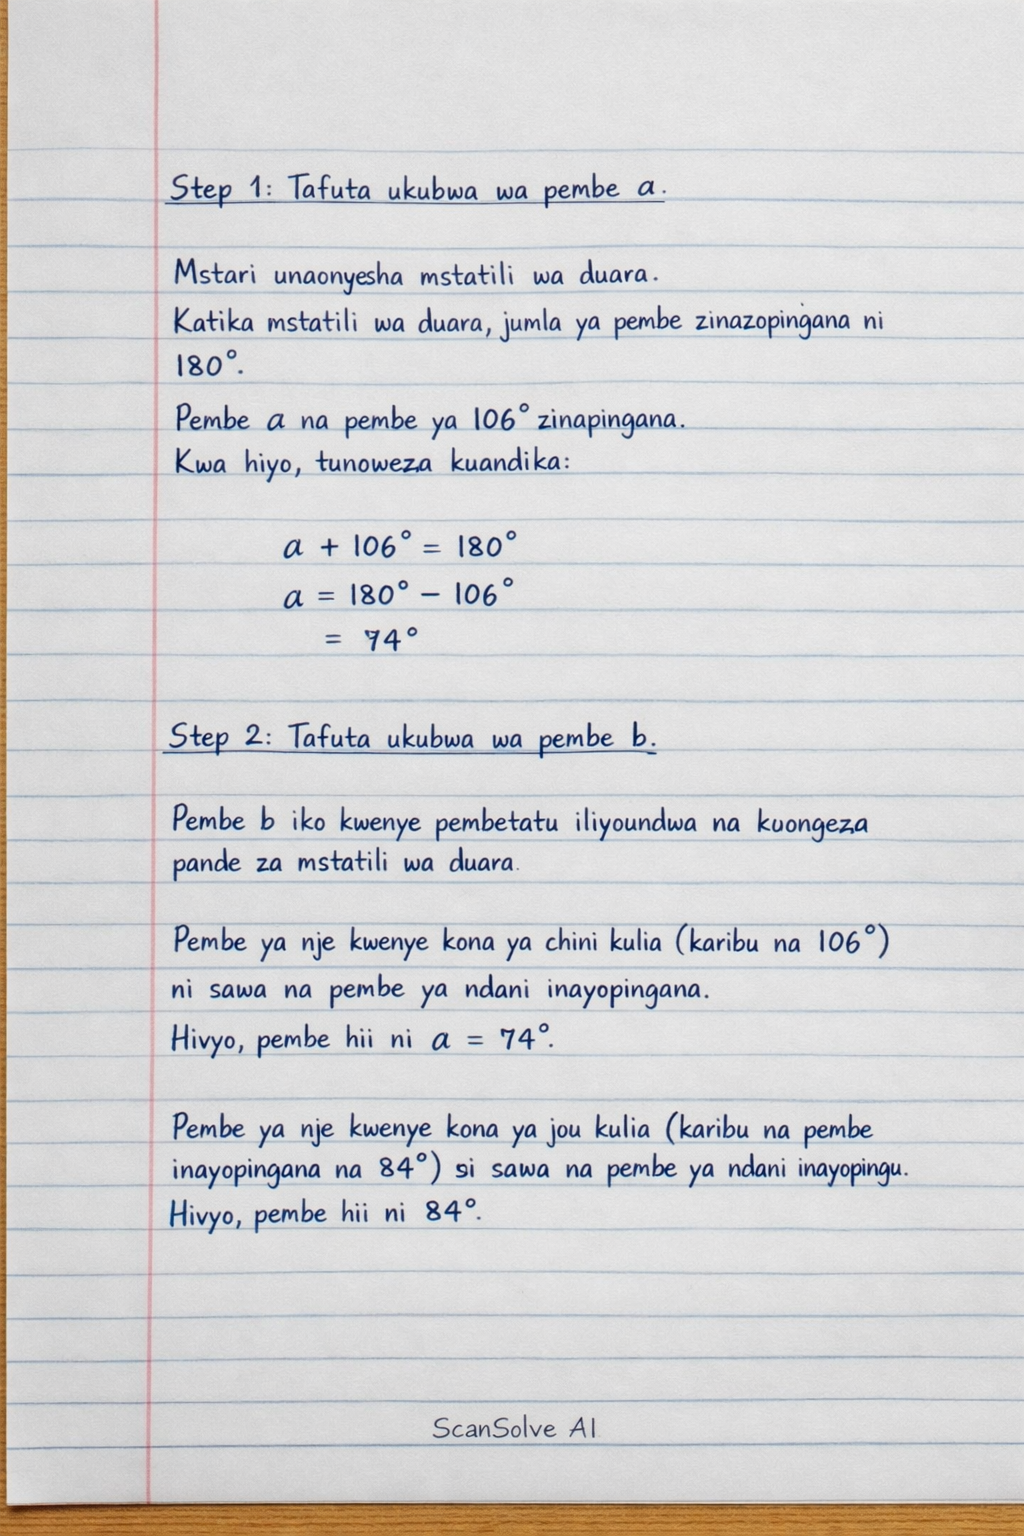 Step 1: Tafuta ukubwa wa pembe a.
Mstari unaonyesha mstatili wa duara.
Katika mstatili wa duara, jumla ya pembe zinazopingana ni
180°.
Pembe a na pembe ya 106° zinapingana.
Kwa hiyo, tunoweza kuandika:
a + 106° = 180°
a = 180° − 106°
= 74°
Step 2: Tafuta ukubwa wa pembe b.
Pembe b iko kwenye pembetatu iliyoundwa na kuongeza
pande za mstatili wa duara.
Pembe ya nje kwenye kona ya chini kulia (karibu na 106°)
ni sawa na pembe ya ndani inayopingana.
Hivyo, pembe hii ni a = 74°.
Pembe ya nje kwenye kona ya jou kulia (karibu na pembe
inayopingana na 84°) si sawa na pembe ya ndani inayopingu.
Hivyo, pembe hii ni 84°.
ScanSolve AI